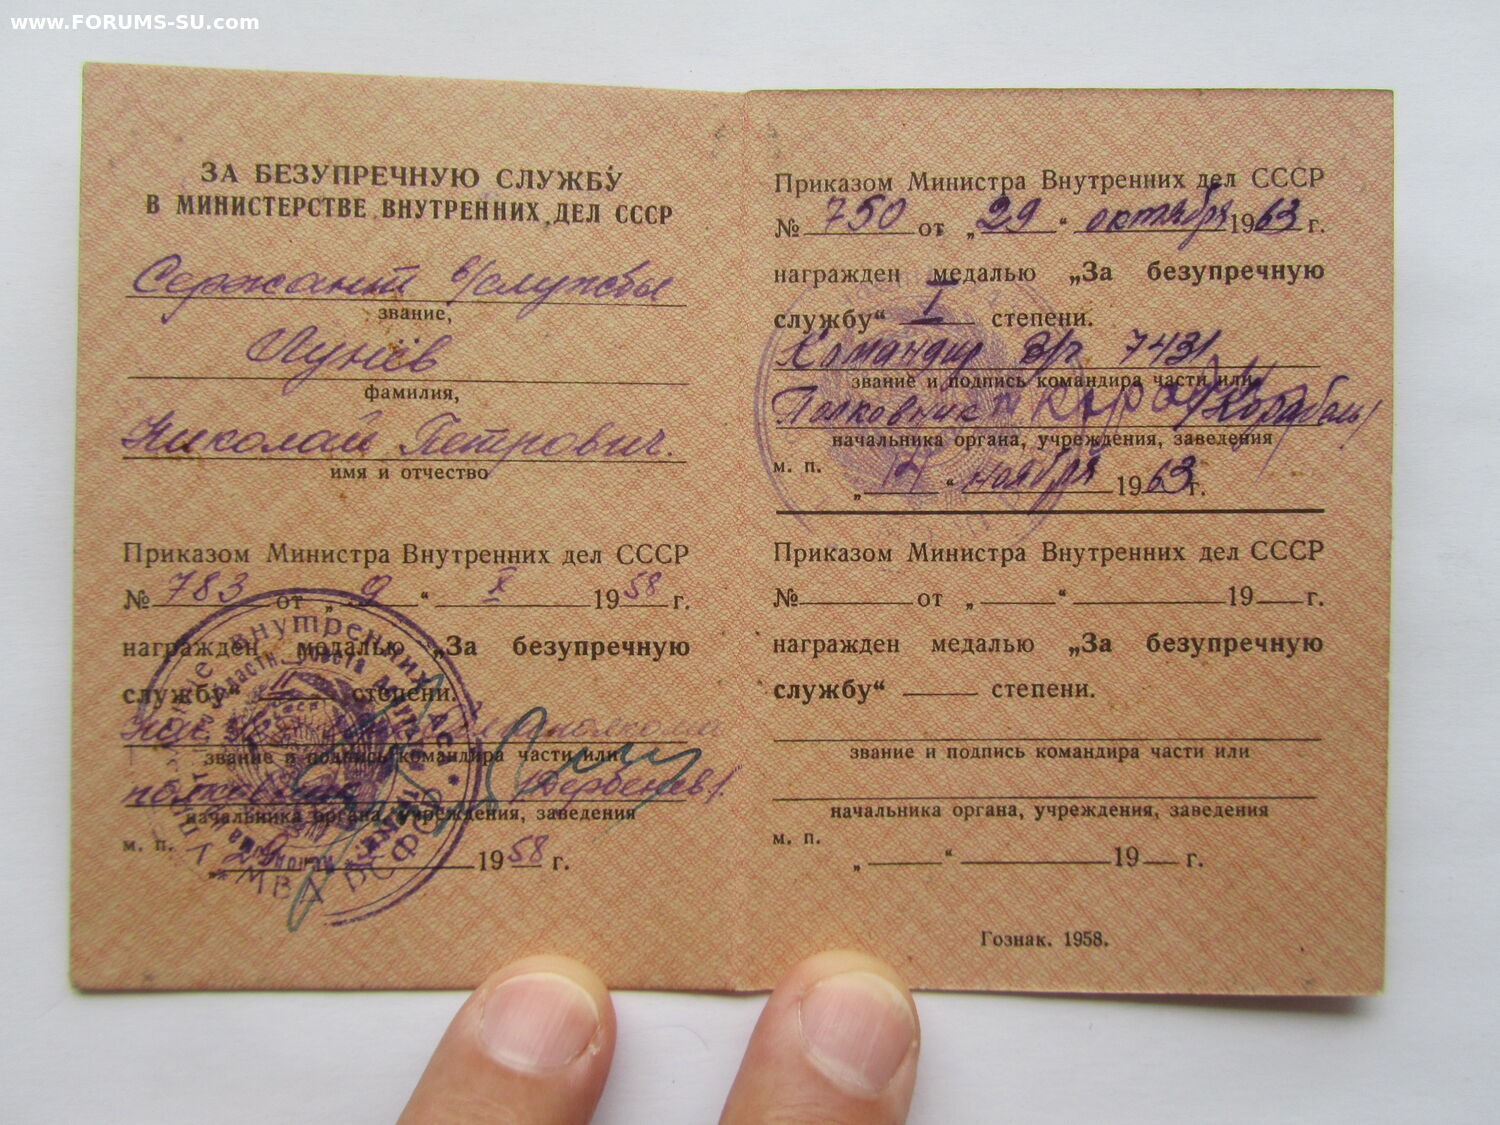 www.FORUMS-SU.com
ЗА БЕЗУПРЕЧНУЮ СЛУЖБУ
В МИНИСТЕРСТВЕ ВНУТРЕННИХ ДЕЛ СССР
Сержант в/службы
звание,
Лунёв
фамилия,
Николай Петрович.
имя и отчество
Приказом Министра Внутренних дел СССР
№ 783 от „ 9 “ X 1958 г.
награжден медалью „За безупречную
службу“ степени.
Нач.
звание и подпись командира части или
полковник (Дербенев).
начальника органа, учреждения, заведения
м. п.
„ 1958 г.
внутренних
МВД РСФСР
Приказом Министра Внутренних дел СССР
№ 750 от „29“ октября 1963 г.
награжден медалью „За безупречную
службу“ I степени.
Командир в/ч 7431
звание и подпись командира части или
Полковник (Корабель)
начальника органа, учреждения, заведения
м. п.
„ “ ноября 1963 г.
Приказом Министра Внутренних дел СССР
№ от „ “ 19 г.
награжден медалью „За безупречную
службу“ степени.
звание и подпись командира части или
начальника органа, учреждения, заведения
м. п.
„ “ 19 г.
Гознак. 1958.